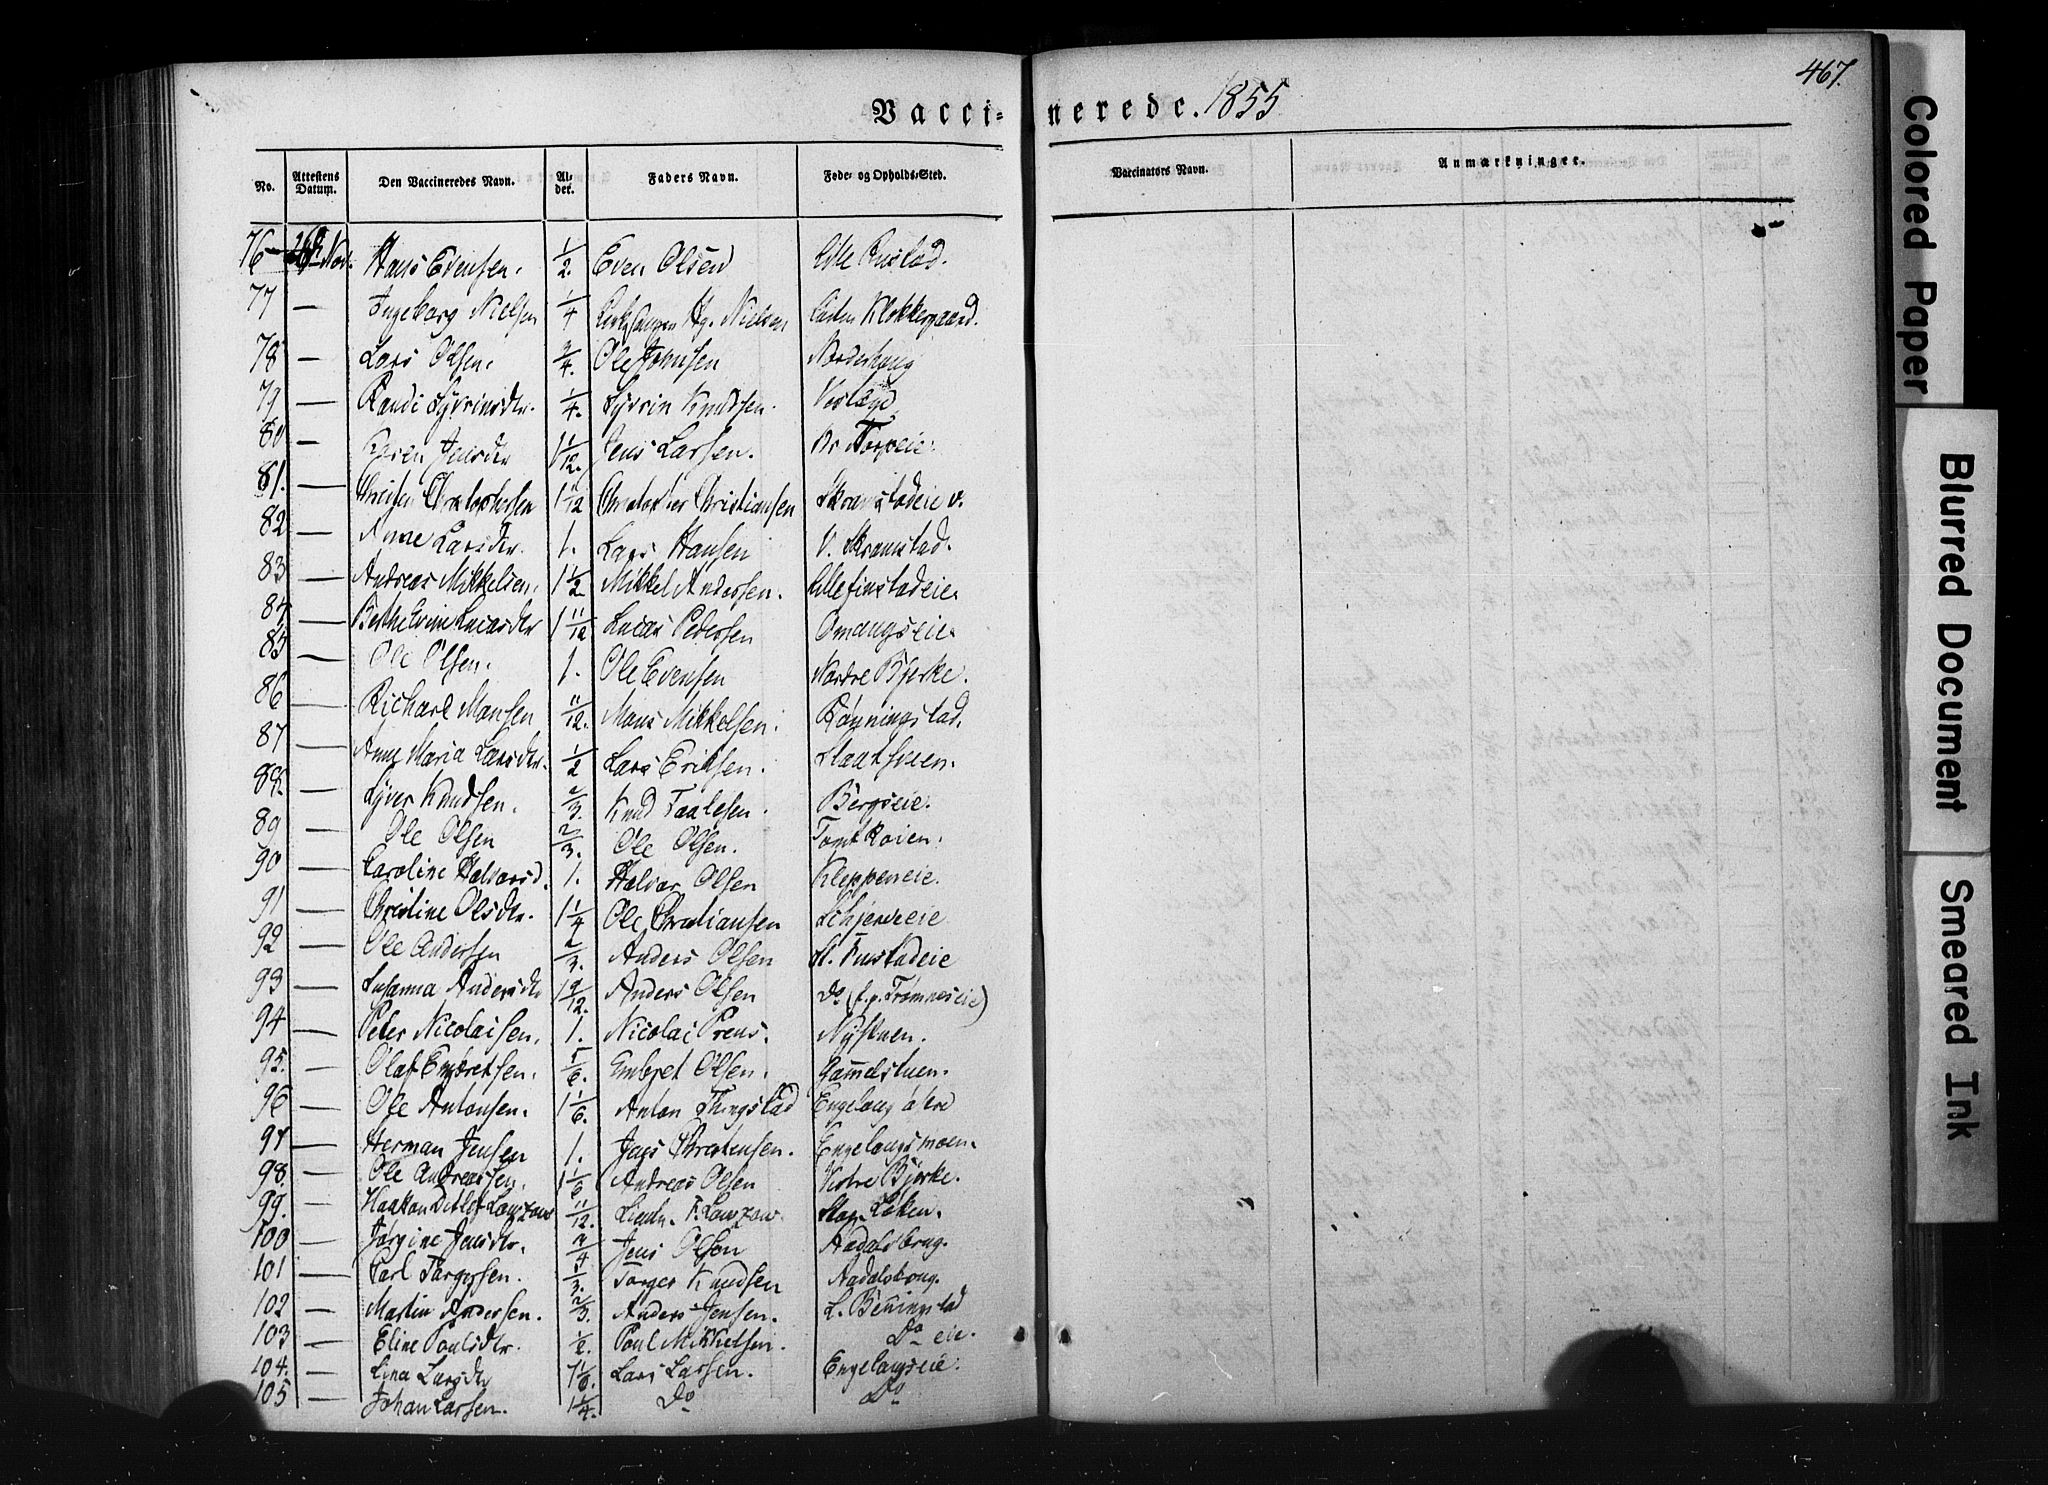 467.
Vacci- nerede. 1855
No. Attestens Datum. Den Vaccineredes Navn. Al- der. Faders Navn. Føde- og Opholds-Sted. Vaccinators Navn. Anmærkninger.
76 Nov. Hans Evensen. 1/2. Even Olsen Lille Rustad.
77 — Ingeborg Nielsen 1/4 Hg. Nielsen Løten Klokkergaard.
78 — Lars Olsen. 3/4. Ole Johnsen Norderhaug
79 — Randi Syvrinsdtr. 1/4. Syvrin Knudsen.
80 — Karen Jensdtr 1 1/12. Jens Larsen.
81. — Christophersen 1 1/12 Christopher Christiansen Skramstadeie v.
82 — Anne Larsdtr. 1. Lars Hansen V. Skramstad.
83 — Andreas Mikkelsen. 1 1/2 Mikkel Andersen. Lillefinstadeie.
84 — Berthe Eveine Lucasdtr 1 11/12 Lucas Pedersen Omangseie.
85 — Ole Olsen. 1. Ole Evensen Nordre Bjerke.
86 — Richard Mansen 11/12. Mans Mikkelsen. Rønningstad.
87 — Anne Maria Larsdtr. 1/2 Lars Eriksen.
88. — Syver Knudsen. 2/3. Knud Taalesen. Bergseie.
89 — Ole Olsen 2/3. Ole Olsen.
90 — Caroline Halvorsd. 1. Halvor Olsen Kleppeneie.
91 — Christine Olsdtr. 1 1/4 Ole Christiansen Schjerdeie
92 — Ole Andersen 2/3. Anders Olsen Rustadeie
93 — Susanna Andersdtr 1 9/12. Anders Olsen Do (f. p. Trømneseie)
94 — Peter Nicolaisen. 1. Nicolai Prens. Nystuen.
95. — Olaf Embretsen. 5/6. Embret Olsen. Gammelstuen.
96 — Ole Antonsen. 1 1/6. Anton Thingstad Engelaug østre
97 — Herman Jensen 1. Jens Christensen. Engelaugsmoen.
98. — Ole Andreassen. 1 1/6 Andreas Olsen Vestre Bjerke.
99. — Haakon Ditlef Lowzow 11/12. Lieutn. F. Lowzow. Løken.
100 — Jørgine Jensdtr. 3/4 Jens Olsen Aadalsbrug.
101 — Carl Torgersen. 1/3. Torger Knudsen Aadalsbrug.
102 — Martin Andersen. 2/3. Anders Jensen. L. Benningstad
103 — Eline Poulsdtr. Poul Mikkelsen. Do eie.
104. — Lina Larsdtr Lars Larsen. Engelaugseie.
105 — Johan Larsen. 1 1/4. Do Do
Colored Paper
Blurred Document
Smeared Ink